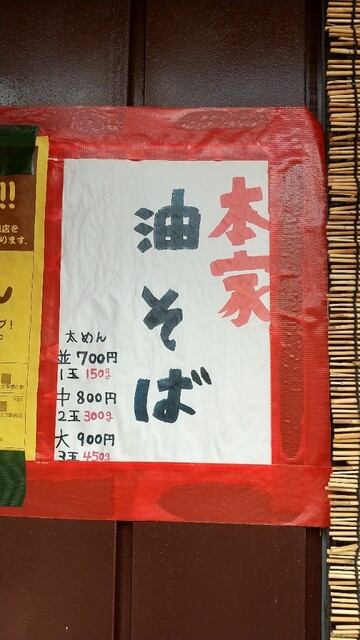 本家
油そば
太めん
並700円
1玉150g
中800円
2玉300g
大900円
3玉450g
!!
店を
ります。